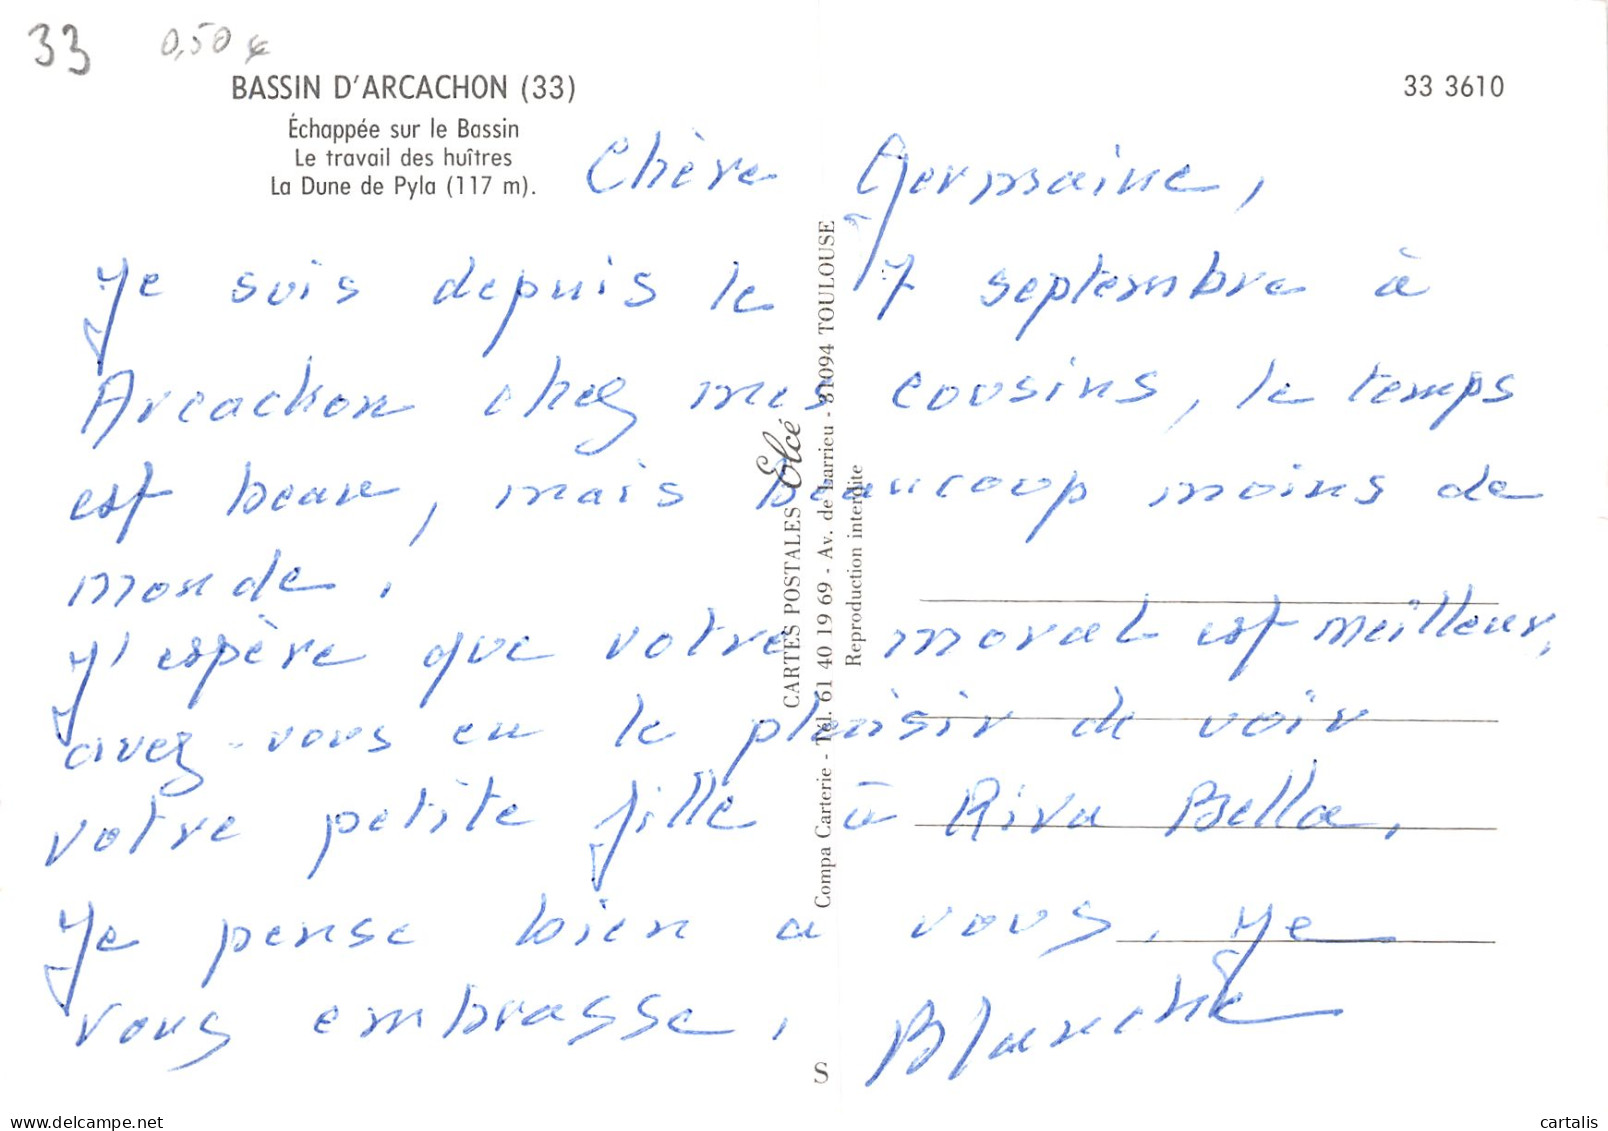 33 0,50 €
BASSIN D'ARCACHON (33)
33 3610
Échappée sur le Bassin
Le travail des huîtres
La Dune de Pyla (117 m).
Chère Germaine,
Je suis depuis le 17 septembre à
Arcachon chez mes cousins, le temps
est beau, mais beaucoup moins de
monde.
J'espère que votre moral est meilleur,
avez-vous eu le plaisir de voir
votre petite fille à Riva Bella.
Je pense bien a vous. Je
vous embrasse. Blanche
CARTES POSTALES Elcé
Compa Carterie - Tél. 61 40 19 69 - Av. de Larrieu - 31094 TOULOUSE
Reproduction interdite
S
delcampe.net
cartalis